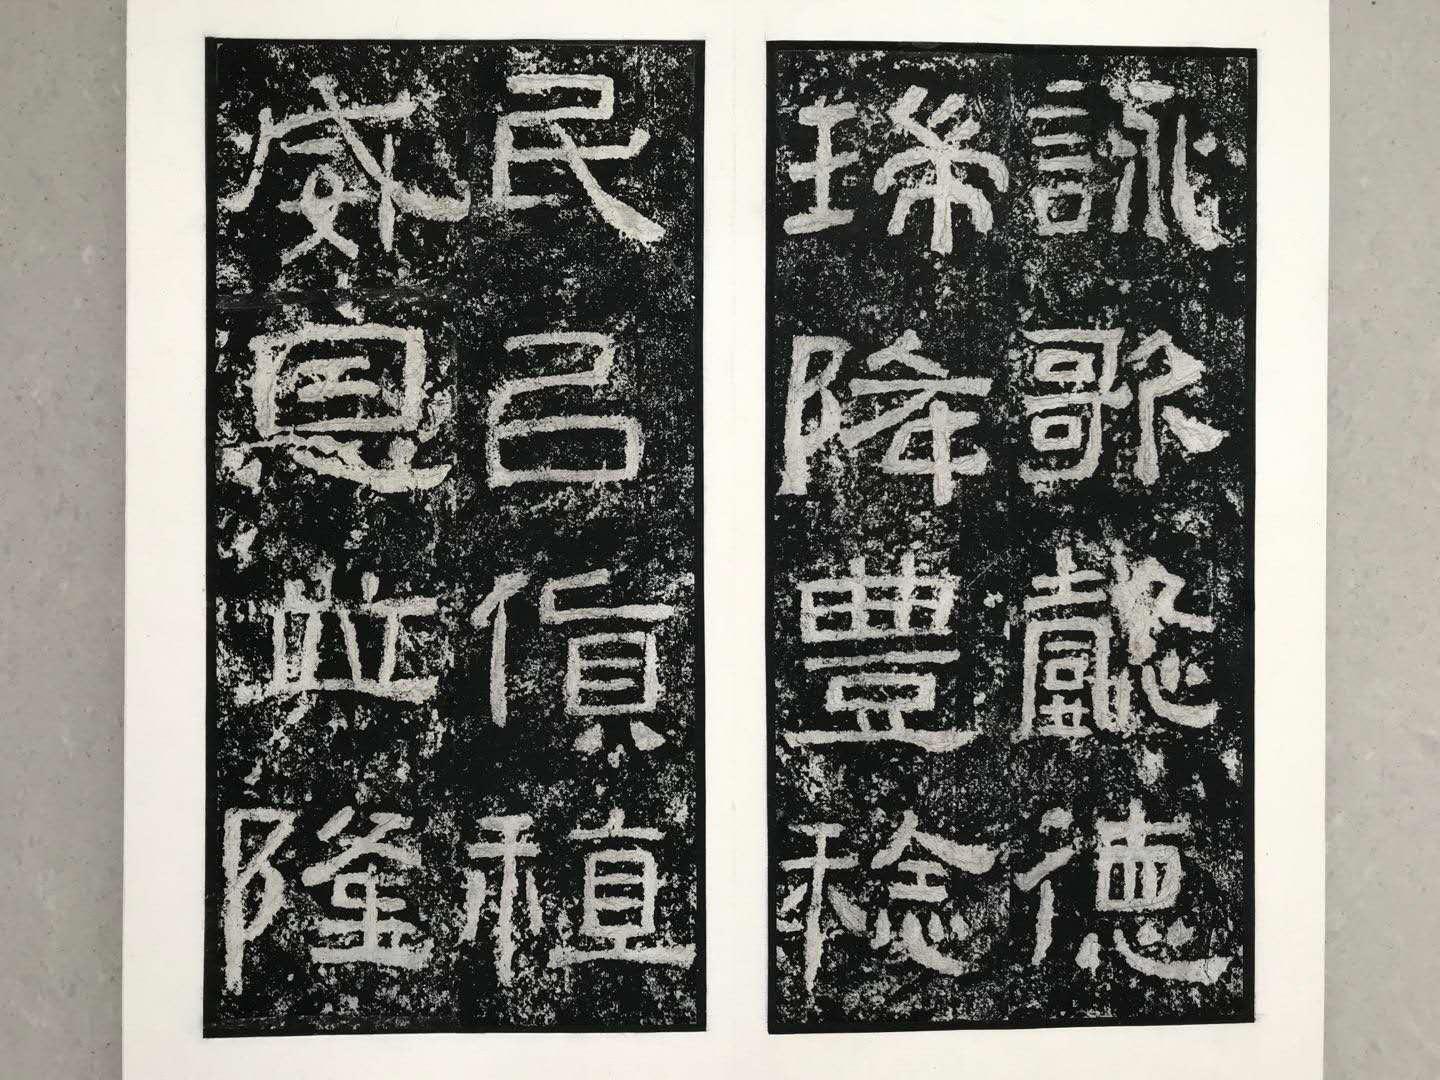 詠歌懿德
瑞降豐稔
民㠯貨稙
威恩並隆